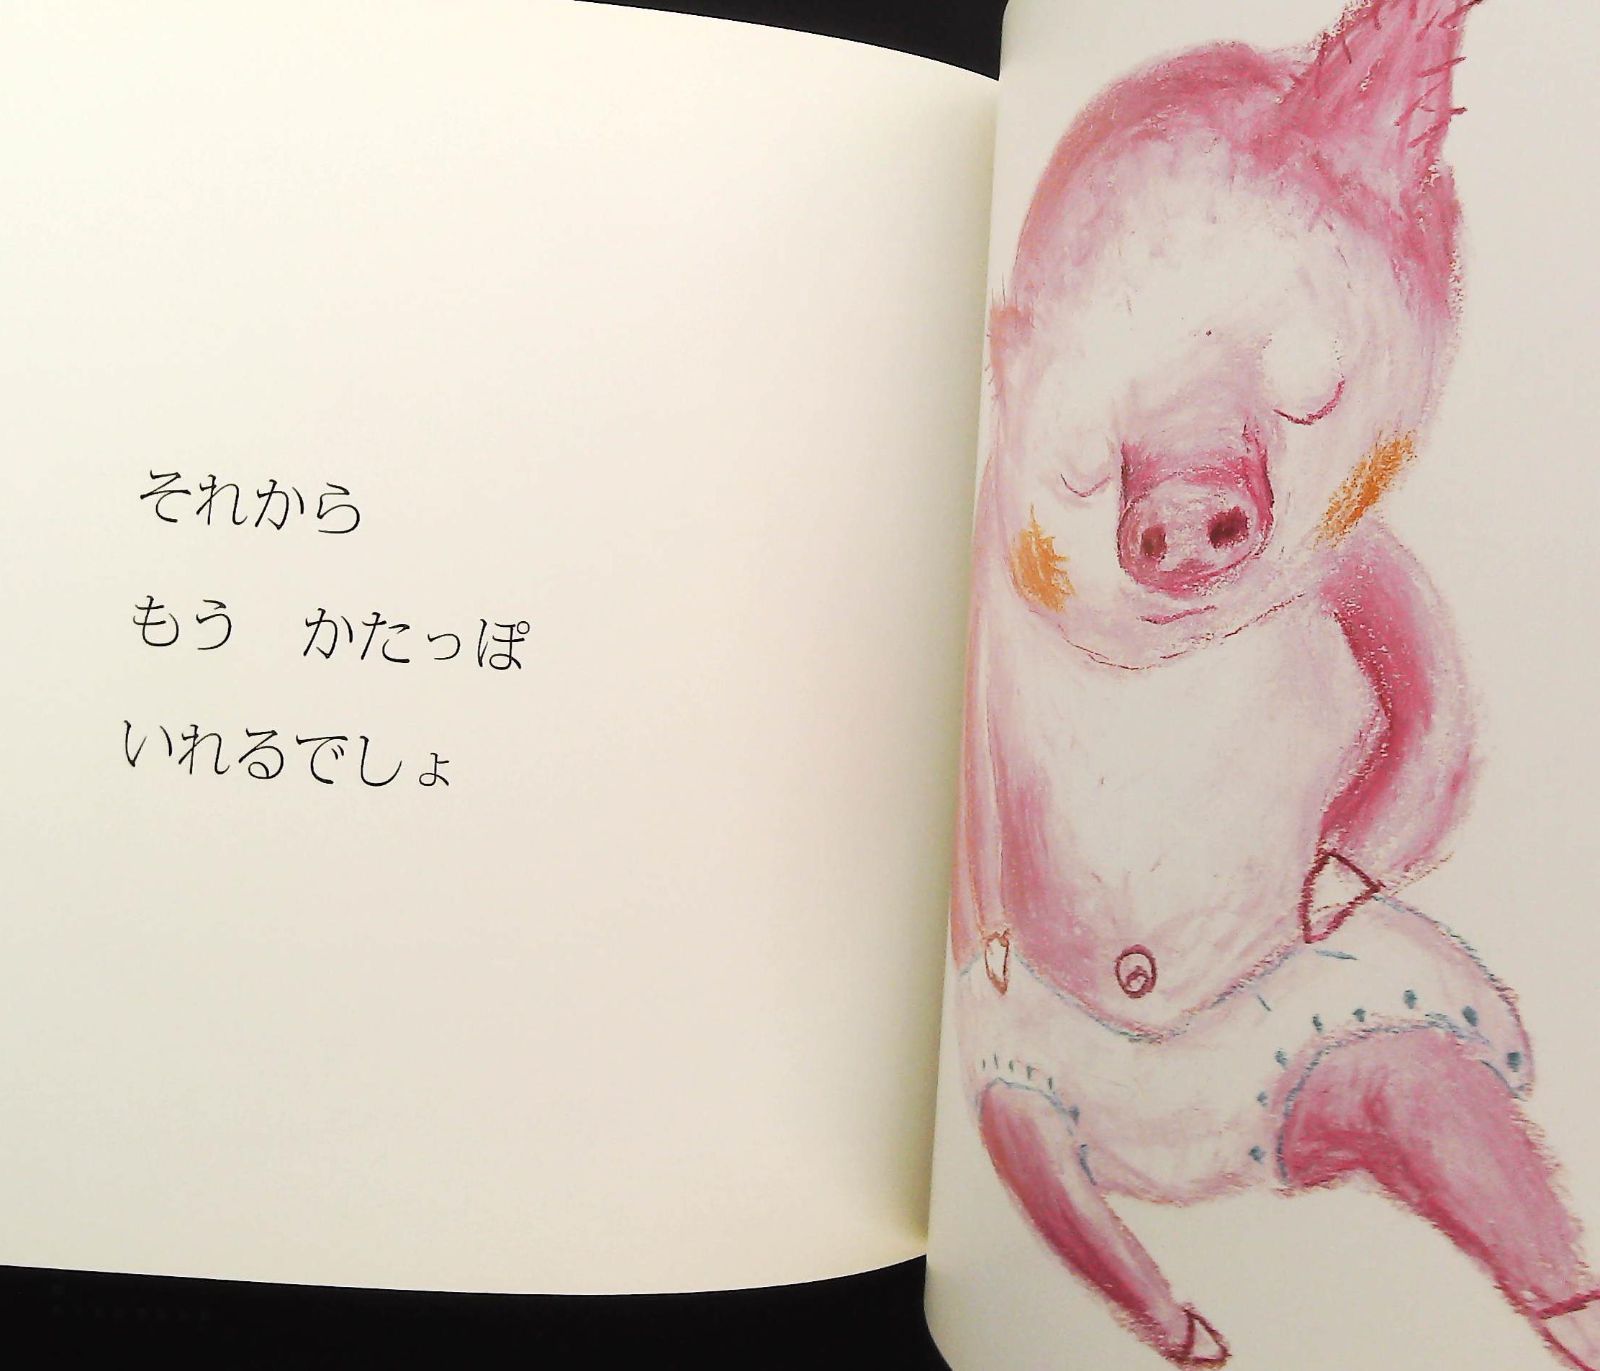 それから
もう　かたっぽ
いれるでしょ